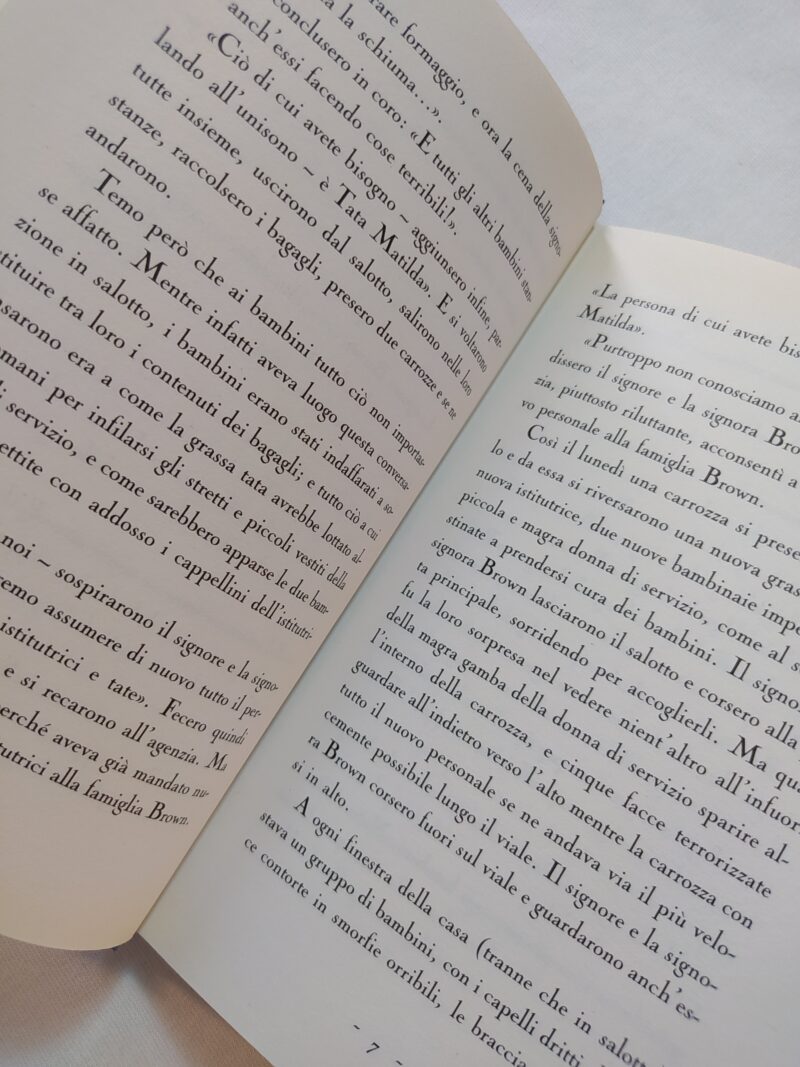 rare formaggio, e ora la cena della signo-
la schiuma...».
conclusero in coro: «E tutti gli altri bambini stan-
anch'essi facendo cose terribili!».
«Ciò di cui avete bisogno – aggiunsero infine, par-
lando all'unisono – è Tata Matilda». E si voltarono
tutte insieme, uscirono dal salotto, salirono nelle loro
stanze, raccolsero i bagagli, presero due carrozze e se ne
andarono.
Temo però che ai bambini tutto ciò non importas-
se affatto. Mentre infatti aveva luogo questa conversa-
zione in salotto, i bambini erano stati indaffarati a so-
stituire tra loro i contenuti dei bagagli; e tutto ciò a cui
nsarono era a come la grassa tata avrebbe lottato al-
omani per infilarsi gli stretti e piccoli vestiti della
di servizio, e come sarebbero apparse le due bam-
ettite con addosso i cappellini dell'istitutri-
noi – sospirarono il signore e la signo-
remo assumere di nuovo tutto il per-
istitutrici e tate». Fecero quindi
e si recarono all'agenzia. Ma
perché aveva già mandato nu-
tutrici alla famiglia Brown.
«La persona di cui avete bis
Matilda».
«Purtroppo non conosciamo a
dissero il signore e la signora Bro
zia, piuttosto riluttante, acconsentì a
vo personale alla famiglia Brown.
Così il lunedì una carrozza si prese
lo e da essa si riversarono una nuova gras
nuova istitutrice, due nuove bambinaie impe
piccola e magra donna di servizio, come al s
stinate a prendersi cura dei bambini. Il signo
signora Brown lasciarono il salotto e corsero alla
ta principale, sorridendo per accoglierli. Ma qua
fu la loro sorpresa nel vedere nient'altro all'infuor
della magra gamba della donna di servizio sparire al-
l'interno della carrozza, e cinque facce terrorizzate
guardare all'indietro verso l'alto mentre la carrozza con
tutto il nuovo personale se ne andava via il più velo-
cemente possibile lungo il viale. Il signore e la signo-
ra Brown corsero fuori sul viale e guardarono anch'es-
si in alto.
A ogni finestra della casa (tranne che in salott
stava un gruppo di bambini, con i capelli dritti,
ce contorte in smorfie orribili, le braccia
- 7 -